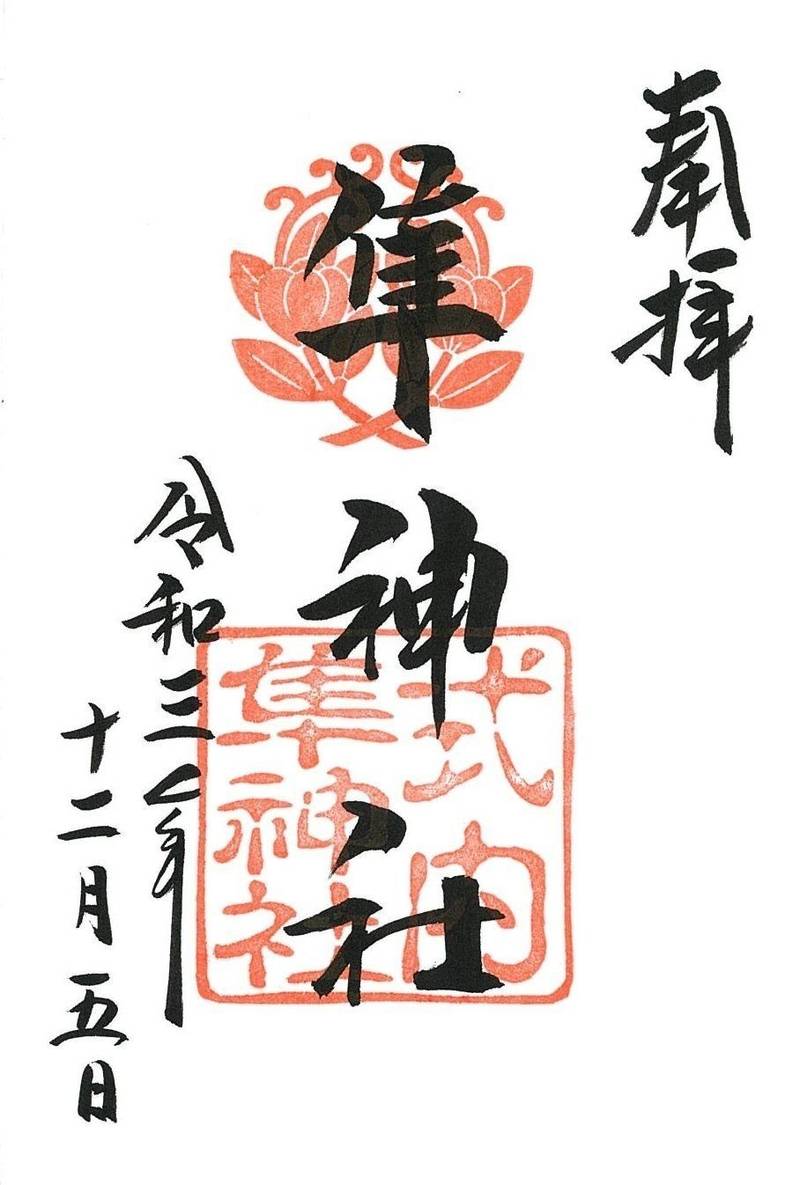 奉拝
隼神社
式内
隼神社
令和三年
十二月五日